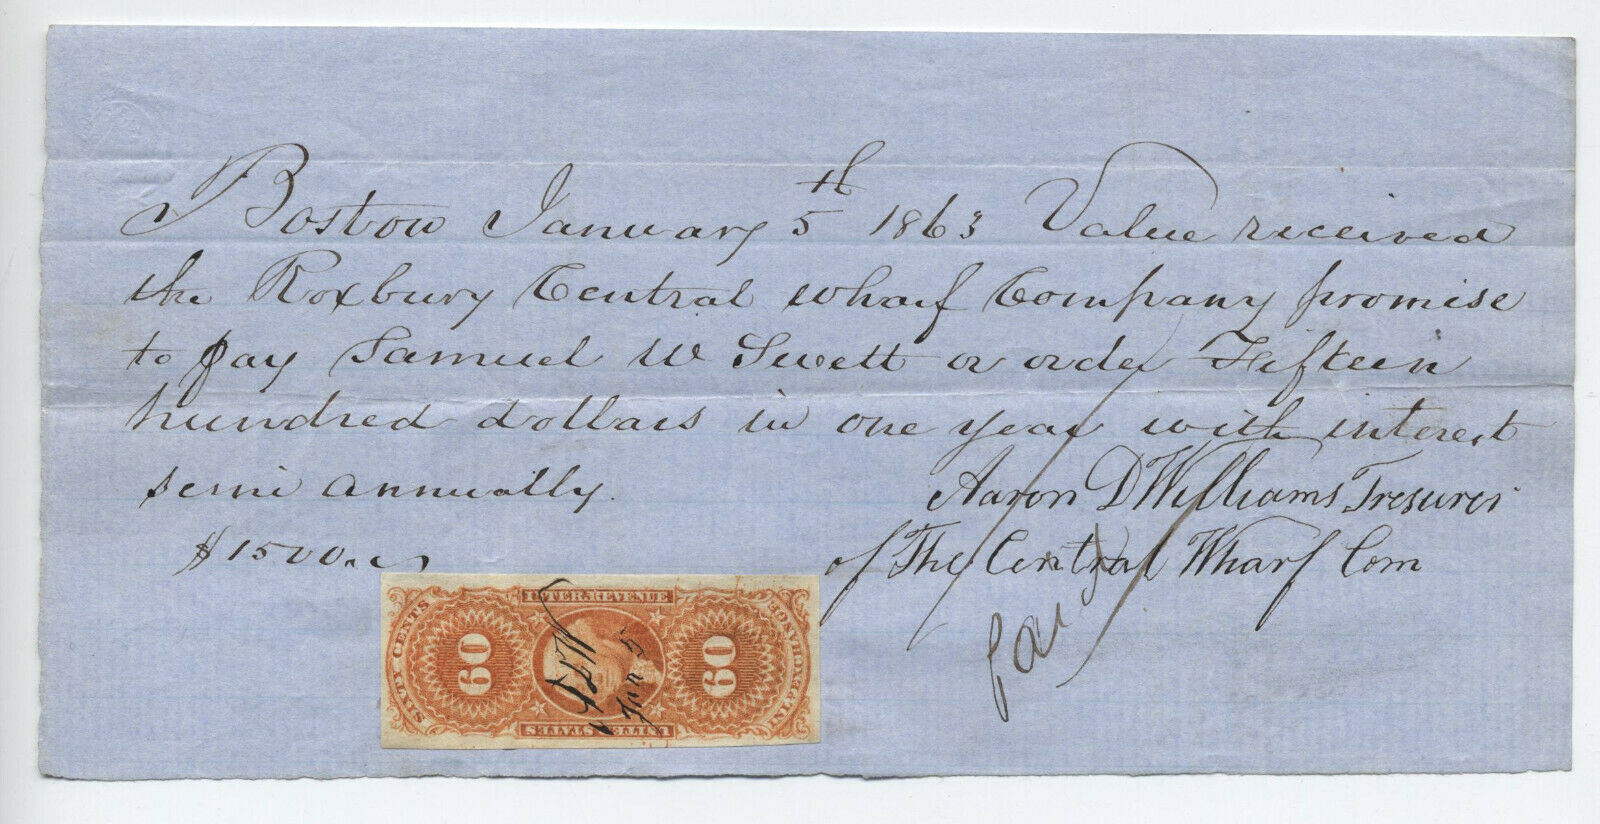 Boston January 5th 1863 Value received
the Roxbury Central wharf Company promise
to pay Samuel W Swett or order Fifteen
hundred dollars in one year with interest
semi annually.
Aaron D Williams Tresurer
of The Central Wharf Com
$1500.
INTER. REVENUE
SIXTY CENTS
60
60
INLAND EXCHANGE
UNITED STATES
ADW
Jan 5